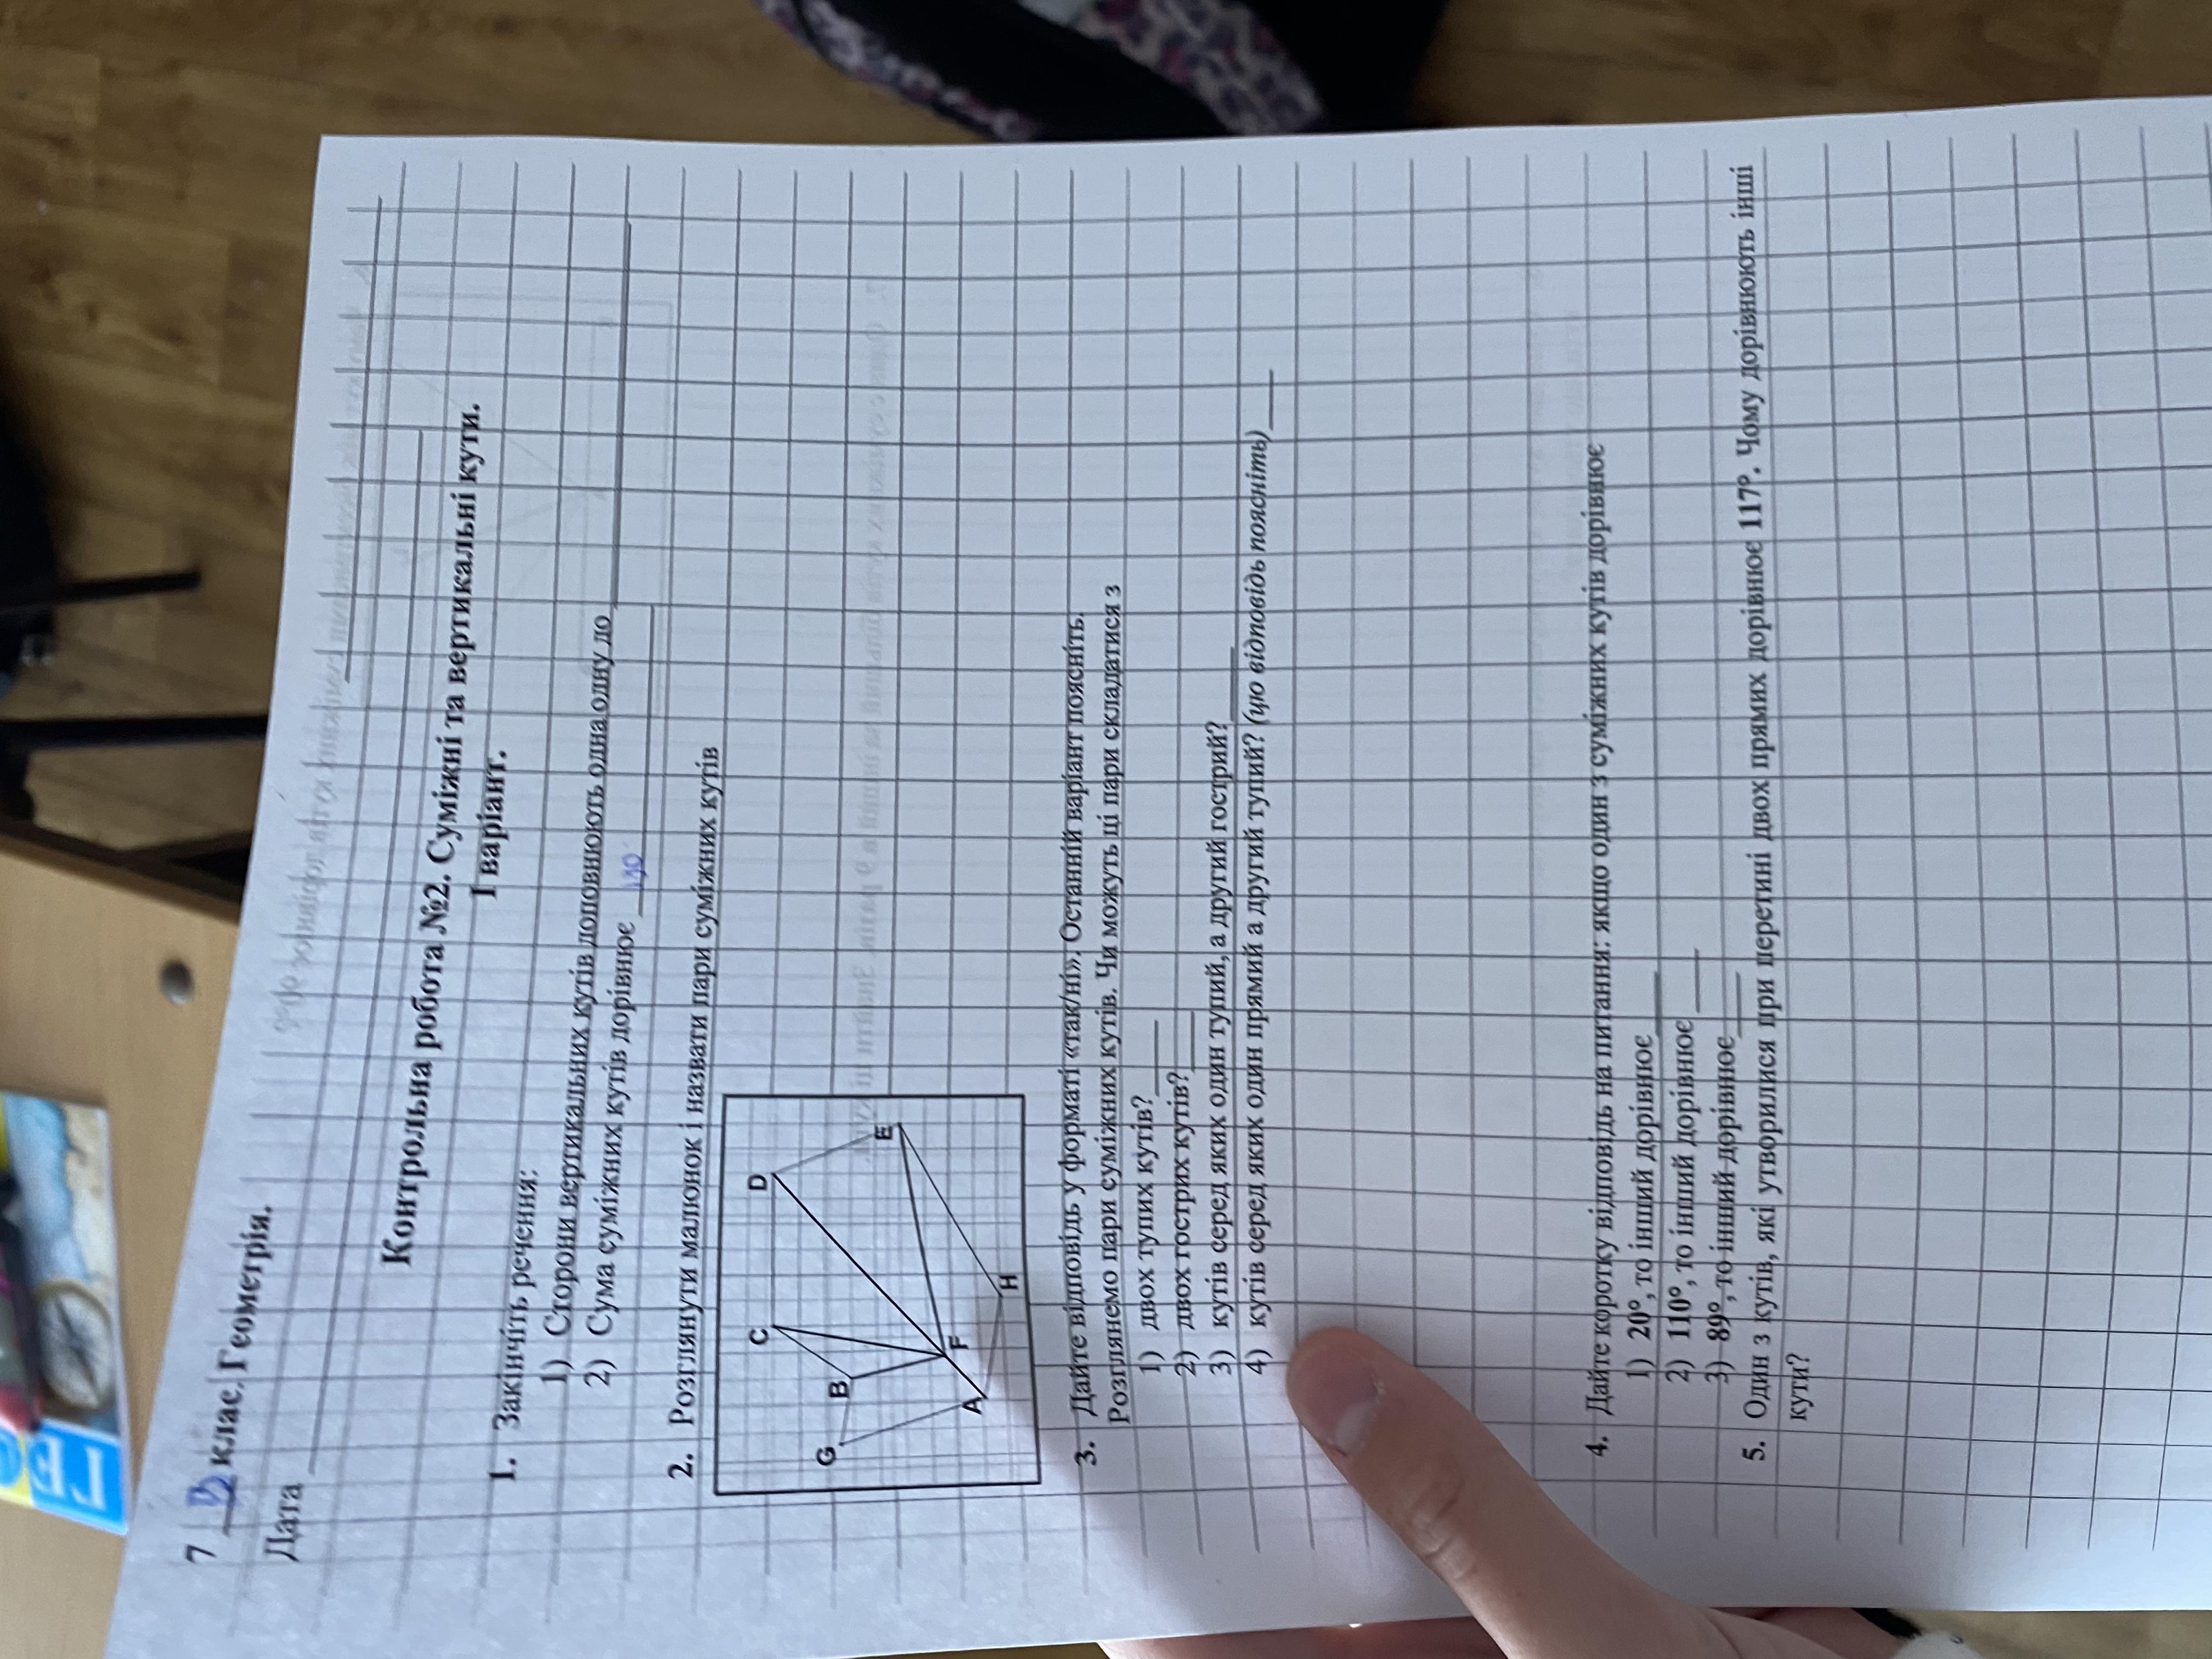 7 В клас. Геометрія.
Дата
Контрольна робота №2. Суміжні та вертикальні кути.
І варіант.
1. Закінчіть речення:
1) Сторони вертикальних кутів доповнюють одна одну до
2) Сума суміжних кутів дорівнює 180°
2. Розглянути малюнок і назвати пари суміжних кутів
C D
G B E
A F H
3. Дайте відповідь у форматі «так/ні». Останній варіант поясніть.
Розглянемо пари суміжних кутів. Чи можуть ці пари складатися з
1) двох тупих кутів?
2) двох гострих кутів?
3) кутів серед яких один тупий, а другий гострий?
4) кутів серед яких один прямий а другий тупий? (цю відповідь поясніть)
4. Дайте коротку відповідь на питання: якщо один з суміжних кутів дорівнює
1) 20°, то інший дорівнює
2) 110°, то інший дорівнює
3) 89°, то інший дорівнює
5. Один з кутів, які утворилися при перетині двох прямих дорівнює 117°. Чому дорівнюють інші
кути?